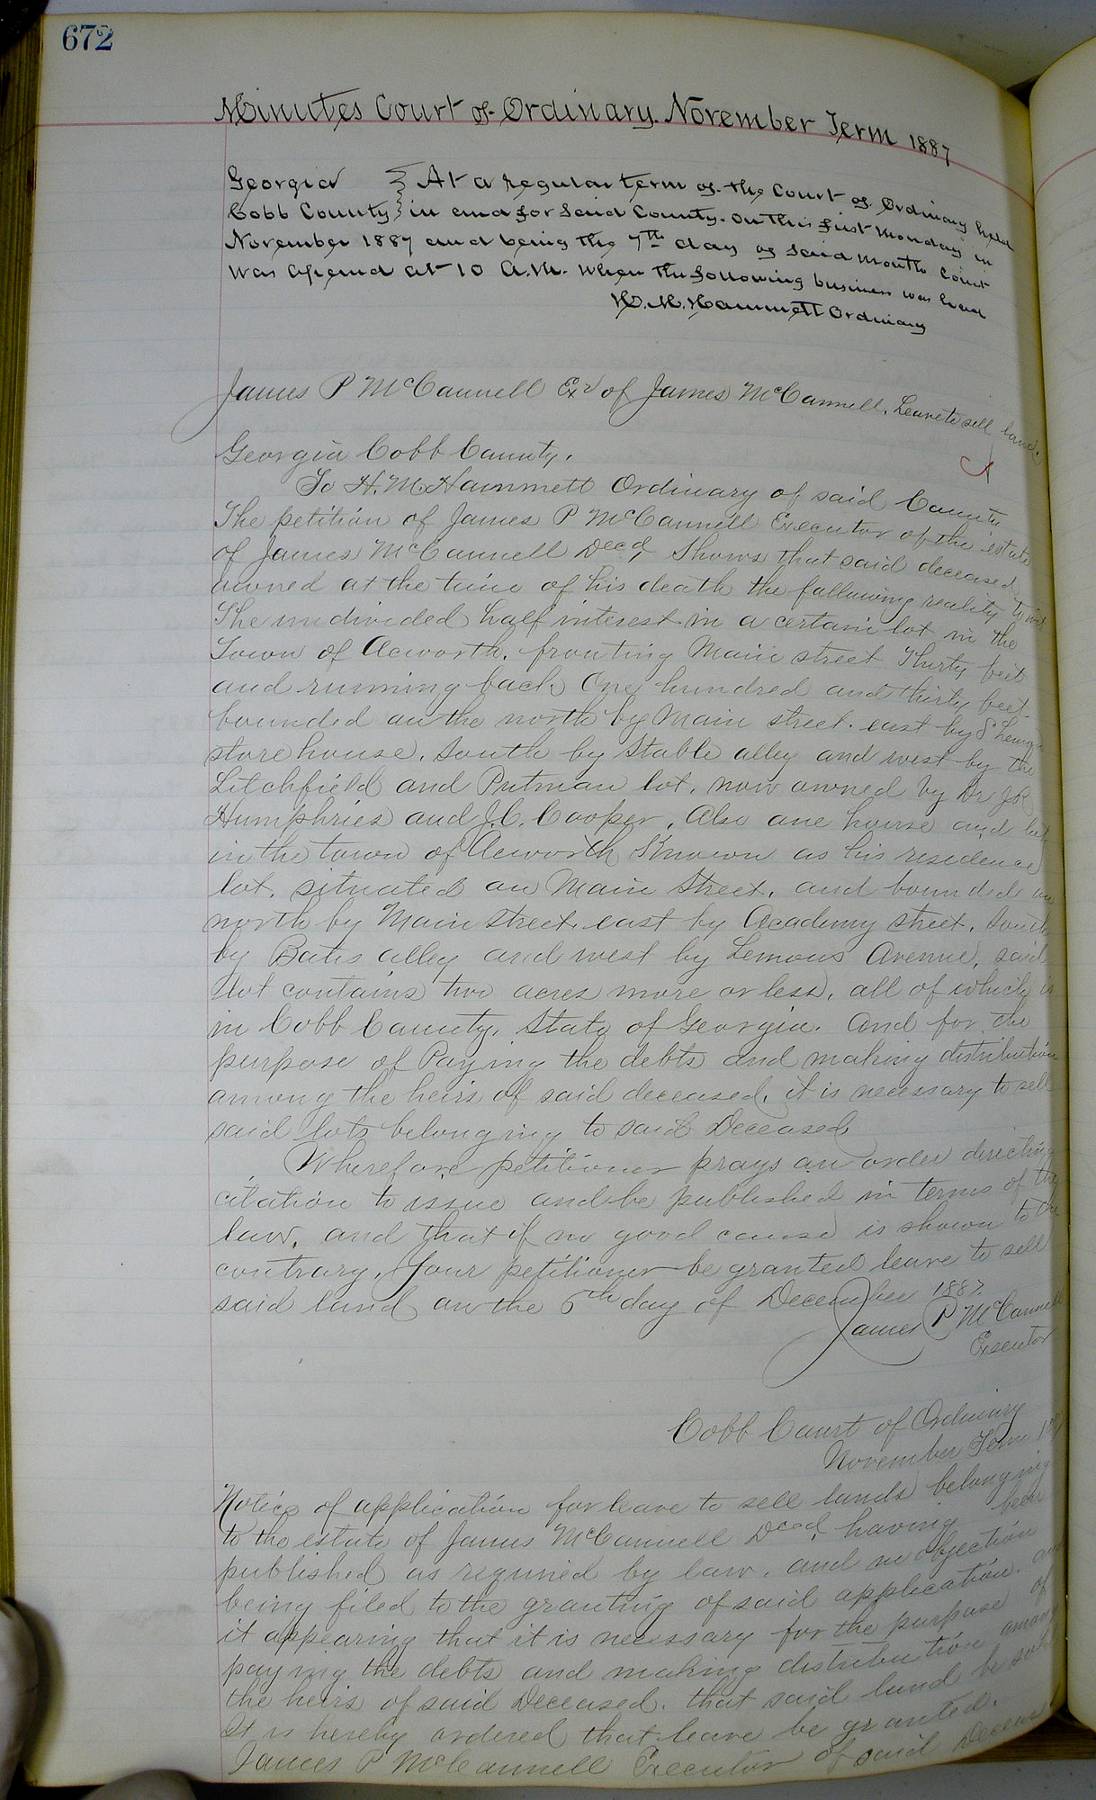 672
Minutes Court of Ordinary. November Term 1887
Georgia } At a regular term of the Court of Ordinary held
Cobb County } in and for said County. on this first Monday in
November 1887 and being the 7th day of said month Court
was opend at 10 A.M. when the following business was had
H. M. Hammett Ordinary
James P McCannell Exr of James McCannell. Leave to sell land.
Georgia Cobb County.
To H. M. Hammett Ordinary of said County
The petition of James P McCannell Executor of the estate
of James McCannell Decd, Shows that said deceased
owned at the time of his death the following reality to wit
The undivided half interest in a certain lot in the
Town of Acworth. fronting Main street Thirty feet
and running back One hundred and thirty feet
bounded on the north by Main street. east by
store house. South by Stable alley and west by the
Litchfield and Putman lot. now owned by Dr
Humphries and J.C. Cooper. Also one house and lot
in the town of Acworth Known as his residence
lot, situated on Main Street. and bounded on
north by Main street. east by Academy street. South
by Bates alley and west by Lemons Avenue. said
lot contains two acres more or less. all of which is
in Cobb County. State of Georgia. And for the
purpose of Paying the debts and making distribution
among the heirs of said deceased. it is necessary to sell
said lots belonging to said Deceased
Wherefore petitioner prays an order directing
citation to issue and be published in terms of the
law. and that if no good cause is shown to the
contrary. Your petitioner be granted leave to sell
said land on the 5th day of December 1887.
James P McCannell
Executor
Cobb Court of Ordinary
November Term
Notice of application for leave to sell lands belonging
to the estate of James McCannell Decd, having been
published as required by law. and no objection
being filed to the granting of said application. and
it appearing that it is necessary for the purpose of
paying the debts and making distribution among
the heirs of said Deceased. that said land be sold
It is hereby ordered that leave be granted.
James P McCannell Executor of said Deceased